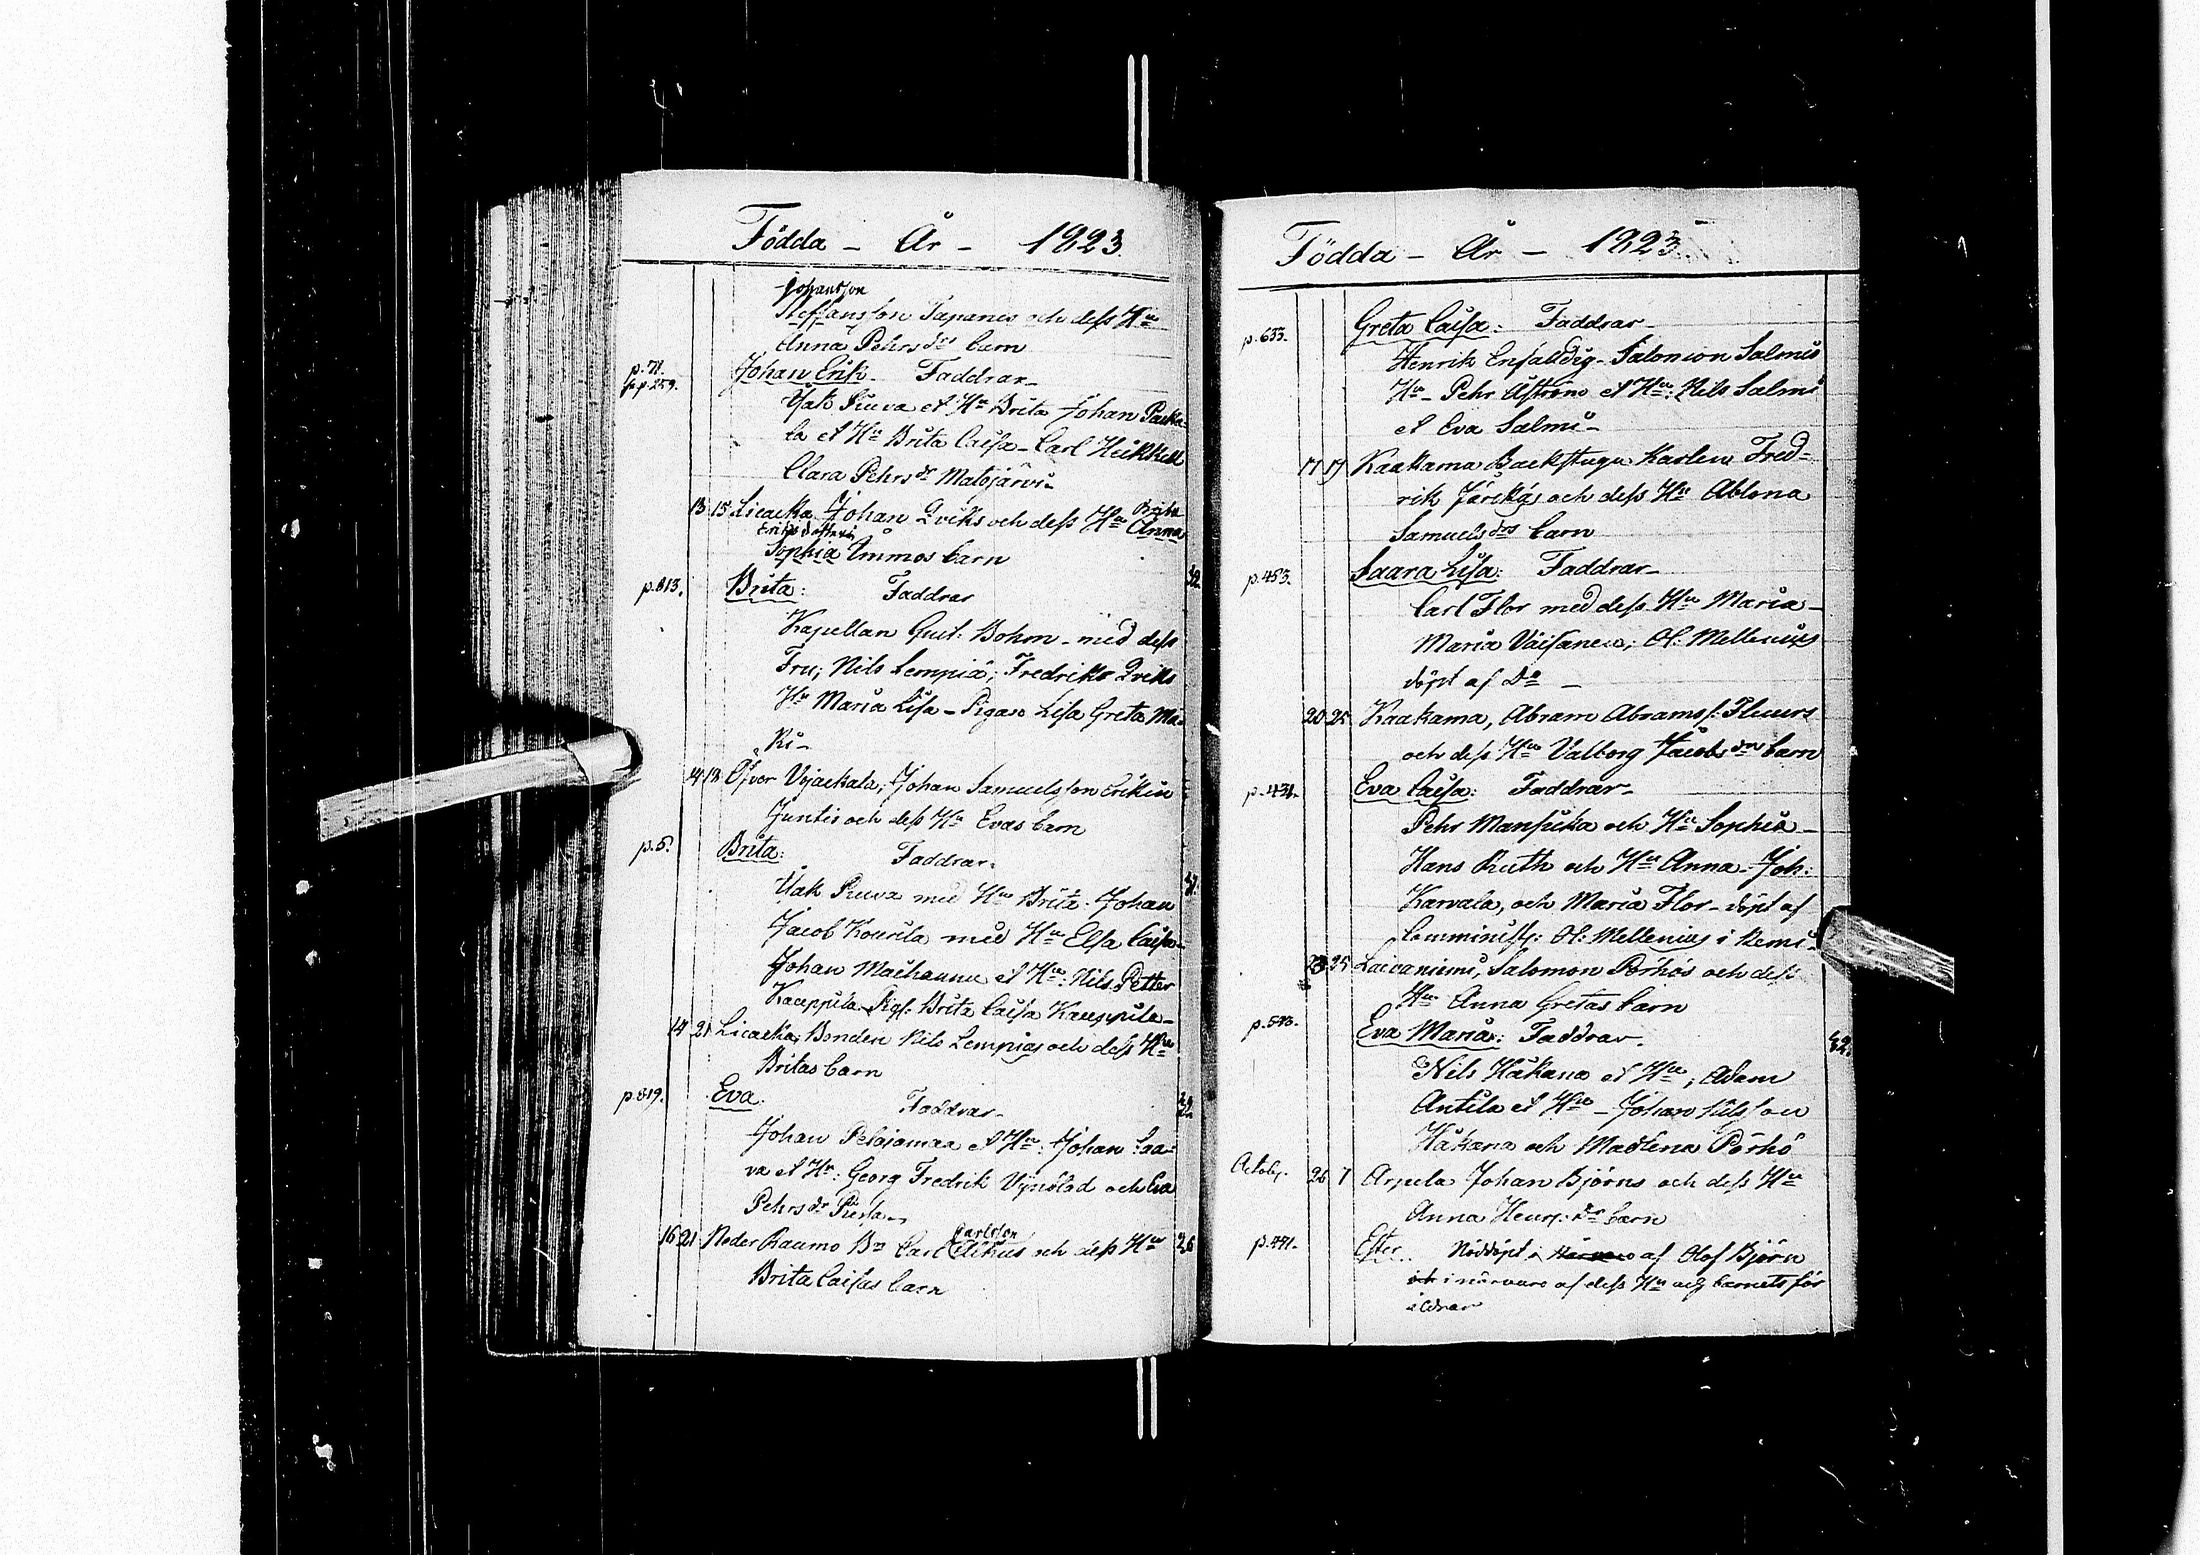 Födda - År - 1823.
Johansson
Steffansson Tapanis och dess Hu
Anna Pehrsdrs barn
p. 71.
fr p. 259.
Johan Erik. Faddrar-
Isak Ruva et Hu Brita Johan Packa-
la et Hu Brita Caisa - Carl Heikkell
Clara Pehrsdr Matojärvi-
13 15 Liaka Johan Qviks och dess Hu Brita Anna
Eriksdotters
Sophia Immos barn
p. 813.
Brita: Faddrar
32.
Kapellan Gust. Bohm - med dess
Fru; Nils Lempiä; Fredriks Qviks
Hu Maria Lisa - Pigan Lisa Greta Ma-
ki-
14 18 Öfver Vojackala, Johan Samuelsson Erikin
Juntis och dess Hu Evas barn
p. 5.
Brita: Faddrar.
Isak Ruva med Hu Brita. Johan
Jacob Kourila med Hu Elsa Caisa-
Johan Maihannu et Hu: Nils Petter
Kauppila Pig: Brita Caisa Kauppila-
14 21 Liacka, Bonden Nils Lempiäs och dess Hu
Britas barn
p. 819.
Eva. Faddrar-
Johan Pelojamaa et Hu: Johan Laa-
va et Hu: Georg Fredrik Vynblad och Eva
Pehrsdr
16 21 Neder Raumo Bn Carl Carlsson och dess Hu
26
Brita Caisas barn
Födda - År - 1823
p. 633.
Greta Caisa: Faddrar-
Henrik Enfalldig - Salomon Salmis
Hu - Pehr Åström et Hu: Nils Salmi
et Eva Salmi-
17 19 Kaakama Backstugu Karlen Fred-
rik och dess Hu Ablona
Samuelsdrs barn
p. 453.
Saara Lisa: Faddrar-
Carl Flor med dess Hu Maria-
Maria Väisanen; Ol: Mellenius
döpt af Do -
20 25 Kaakama, Abram Abramss: Fluurs
och dess Hu Valborg Jacobsdrs barn
p. 431.
Eva Caisa: Faddrar-
Pehr Mansicka och Hu Sophia-
Hans Ruth och Hu Anna - Joh:
Karvala, och Maria Flor - döpt af
Comminist: Ol: Mellenius i Kemi-
23 25 Laivaniemi, Salomon Pörhös och dess
Hu Anna Gretas barn
p. 593.
Eva Maria: Faddrar.
32.
Nils Håkana et Hu; Adam
Antila et Hu - Johan Nilsson
Håkana och Madlena Pörhö
Octobr. 26 7 Arpela Johan Björns och dess Hu
Anna Henrs: drs barn
p. 441.
Ester. Nöddöpt af Olof Björn
i närvaro af dess Hu och barnets för
äldrar